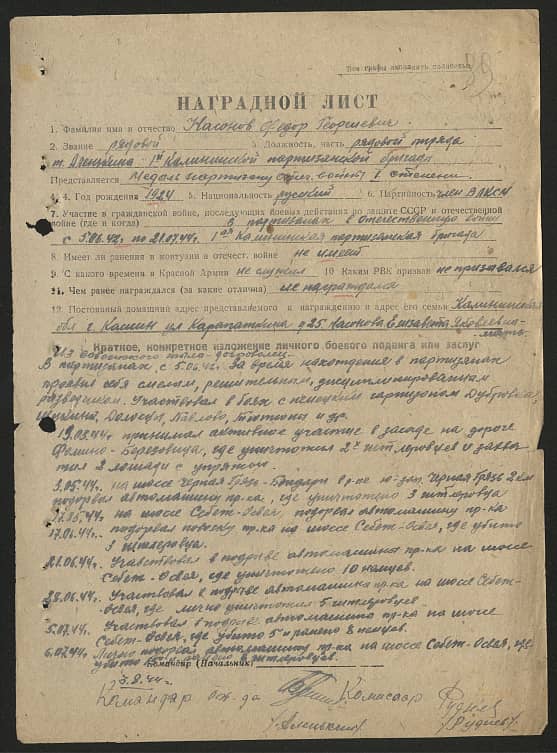 Все графы заполнять полностью
39
НАГРАДНОЙ ЛИСТ
1. Фамилия имя и отчество Насонов Федор Георгиевич.
2. Звание рядовой 3. Должность, часть рядовой отряда
1ой Калининской партизанской бригады
Представляется Медаль партизану отеч. войны I степени.
4. Год рождения 1924 5. Национальность русский 6. Партийность член ВЛКСМ
7. Участие в гражданской войне, последующих боевых действиях по защите СССР и отечественной
войне (где и когда) В партизанах в отечественную войну
с 5.06.42г по 21.07.44г. 1ая Калининская партизанская бригада
8. Имеет ли ранения и контузии в отечест. войне не имеет
9. С какого времени в Красной Армии не служил 10 Каким РВК призван не призывался
11. Чем ранее награждался (за какие отличия) не награждался
12 Постоянный домашний адрес представляемого к награждению и адрес его семьи Калининская
обл г. Кашин ул Карапаткина д 25. Насонова Елизавета Яковлевна-
мать.
Краткое, конкретное изложение личного боевого подвига или заслуг
доброволец.
В партизанах с 5.06.42г. За время нахождения в партизанах
проявил себя смелым, решительным, дисциплинированным
разведчиком. Участвовал в боях с немецким гарнизоном Дубровка,
Долосцы, Павлово, и др.
19.03.44г принимал активное участие в засаде на дороге
Фомино-Березовица, где уничтожил 2х гитлеровцев и захва
тил 2 лошади с упряжью.
3.05.44г. на шоссе Черная Грязь-Бондари в р-не ю-зап. Черная Грязь 2км
подорвал автомашину пр-ка, где уничтожено 3 гитлеровца
на шоссе Себеж-Освея, подорвал автомашину пр-ка
17.06.44г. подорвал повозку пр-ка на шоссе Себеж-Освея, где убито
3 гитлеровца.
21.06.44г. Участвовал в подрыве автомашины пр-ка на шоссе
Себеж-Освея, где уничтожено 10 немцев.
28.06.44г. Участвовал в подрыве автомашины пр-ка на шоссе Себеж-
Освея, где лично уничтожил 5 гитлеровцев.
5.07.44г. Участвовал в подрыве автомашины пр-ка на шоссе
Себеж-Освея, где убито 5 и ранено 8 немцев.
6.07.44г. Лично подорвал автомашину пр-ка на шоссе Себеж-Освея, где
убито гитлеровцев.
Командир (Начальник)
Командир отр-да Комиссар